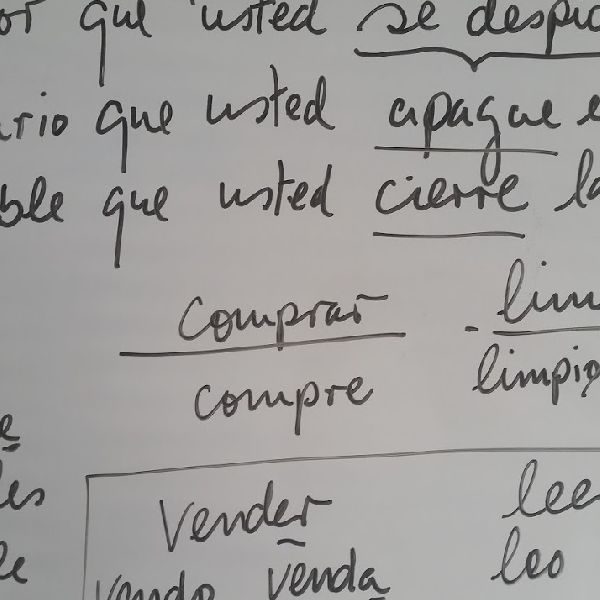 que usted se despid
ario que usted apague e
ble que usted cierre la
comprar - lim
compre limpie
e
es Vender lee
le vendo venda leo